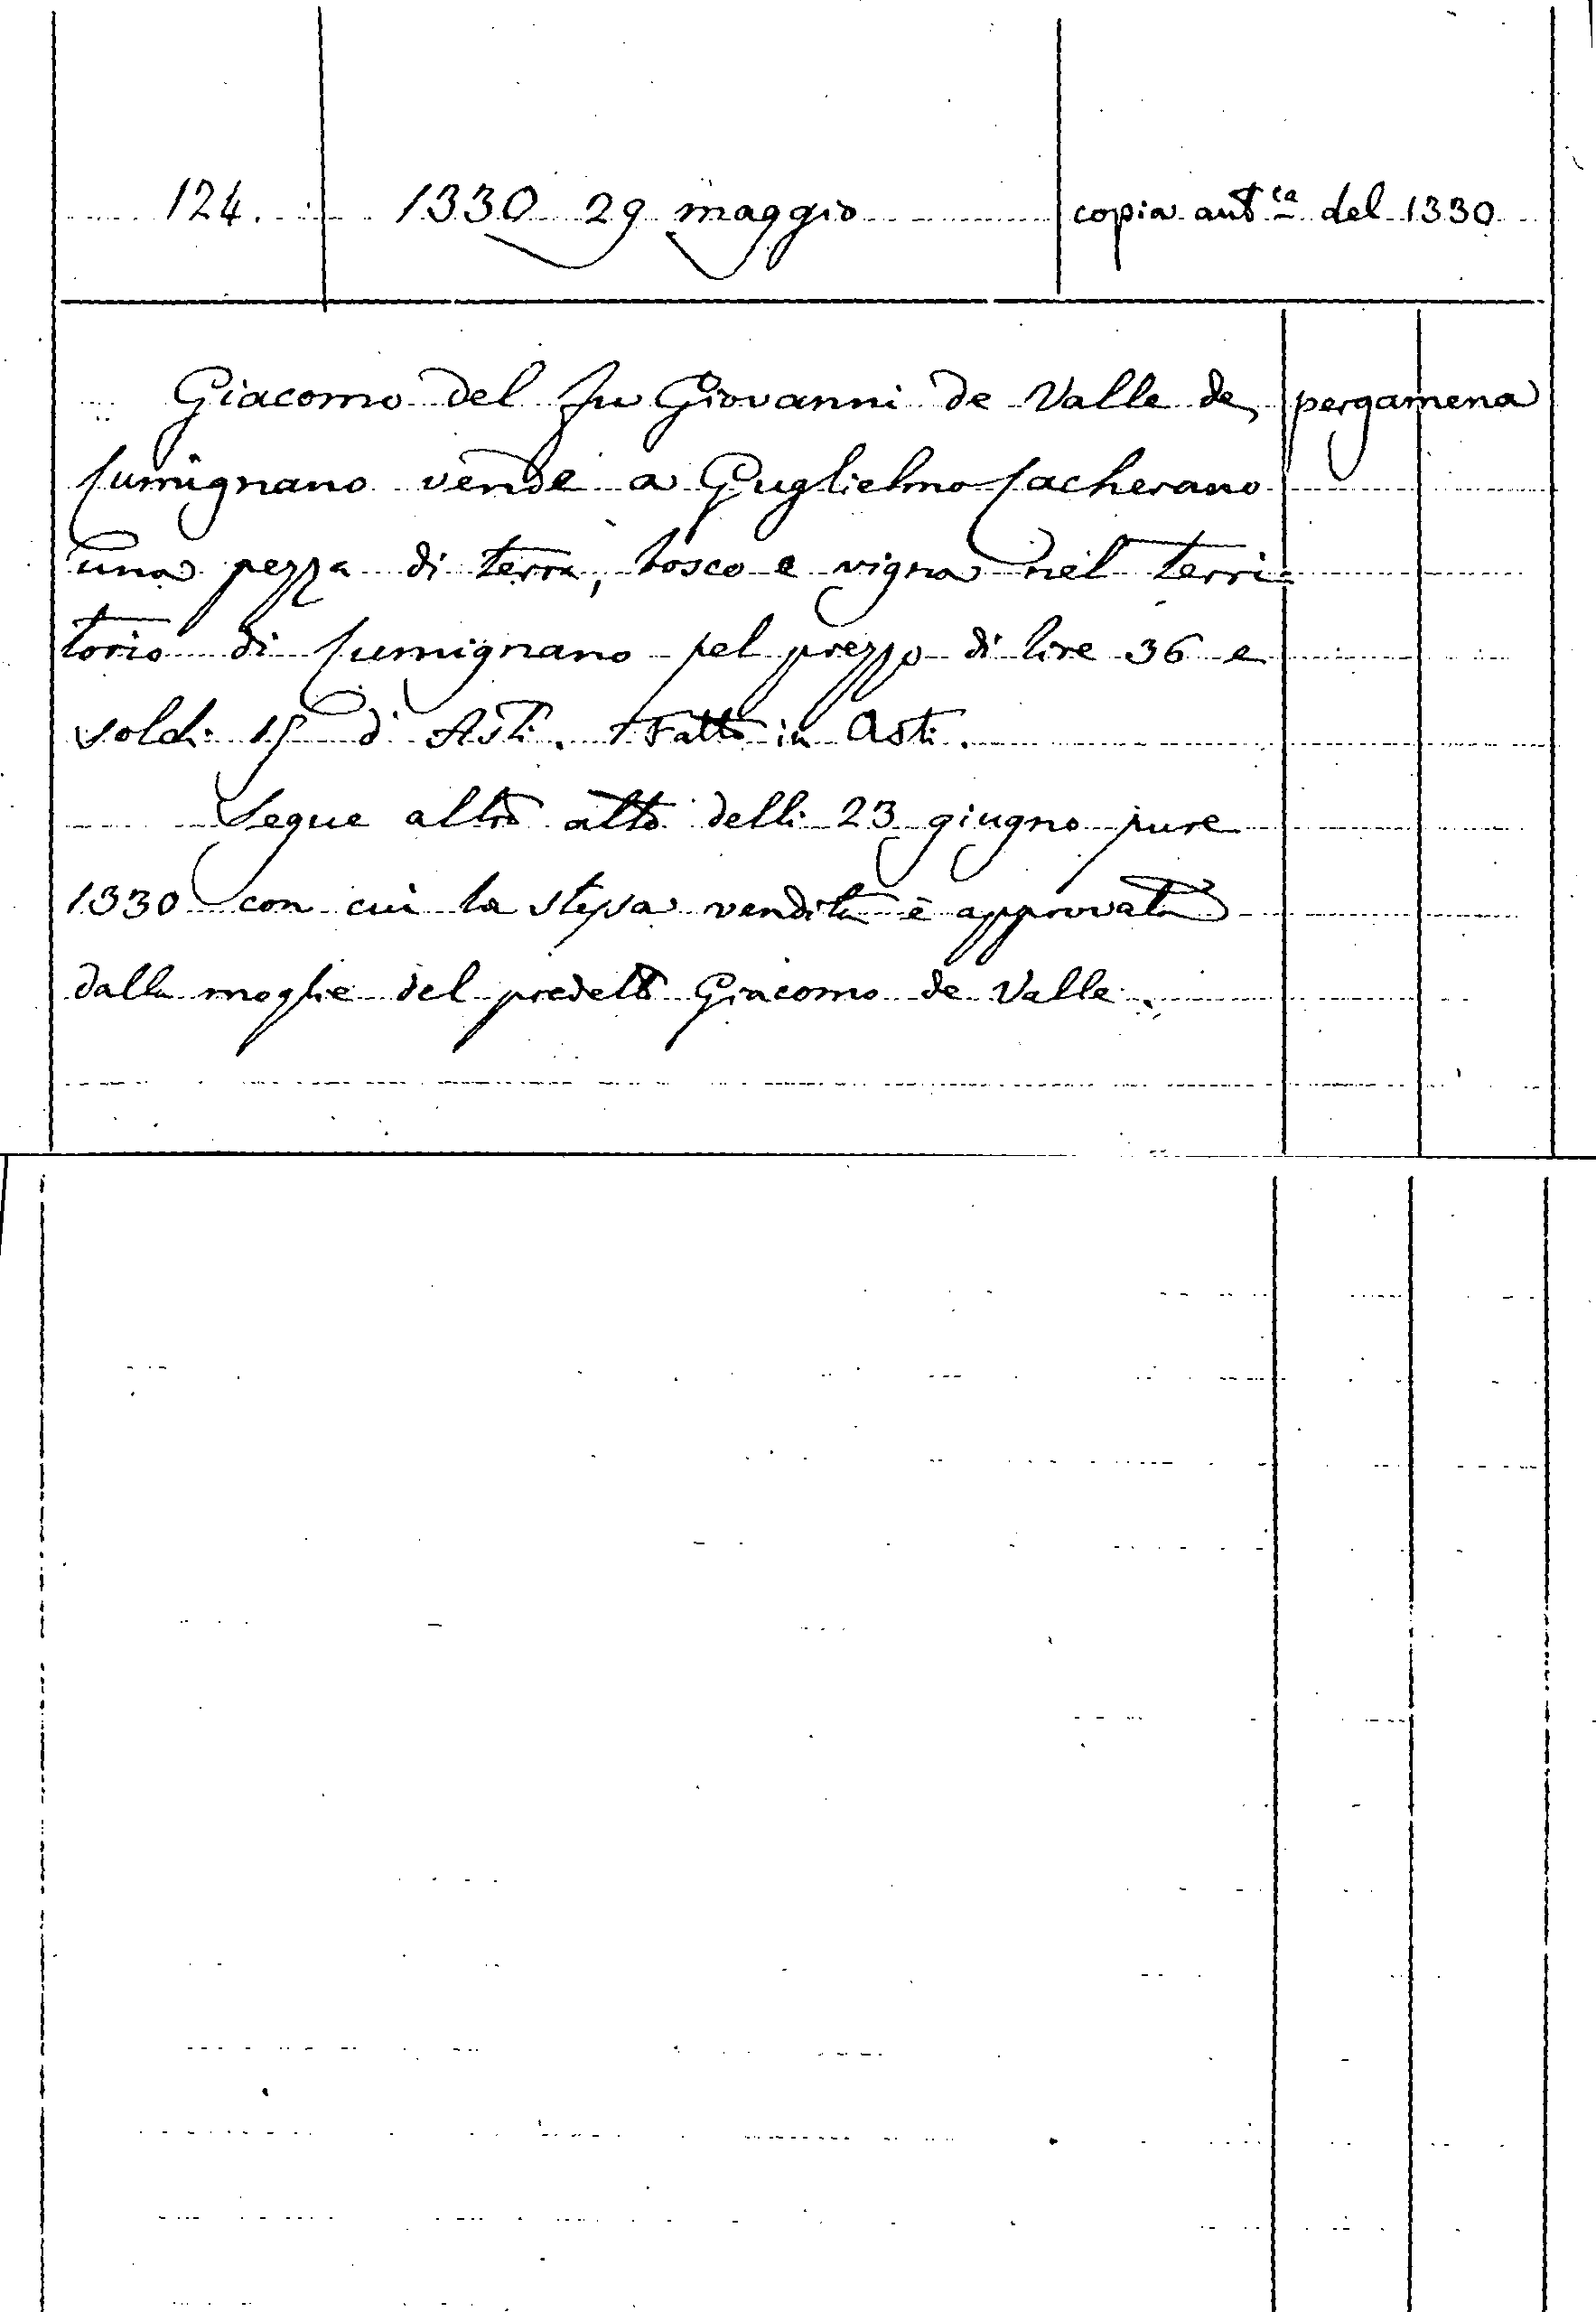 124. 1330 29 maggio copia autca del 1330
Giacomo del fu Giovanni de Valle de pergamena
Cumignano vende a Guglielmo Cacherano
una pezza di terra, bosco e vigna nel terri=
torio di Cumignano pel prezzo di lire 36 e
soldi 15 d'Asti. Fatto in Asti.
Segue altro atto delli 23 giugno pure
1330 con cui la stessa vendita è approvata
dalla moglie del predetto Giacomo de Valle.